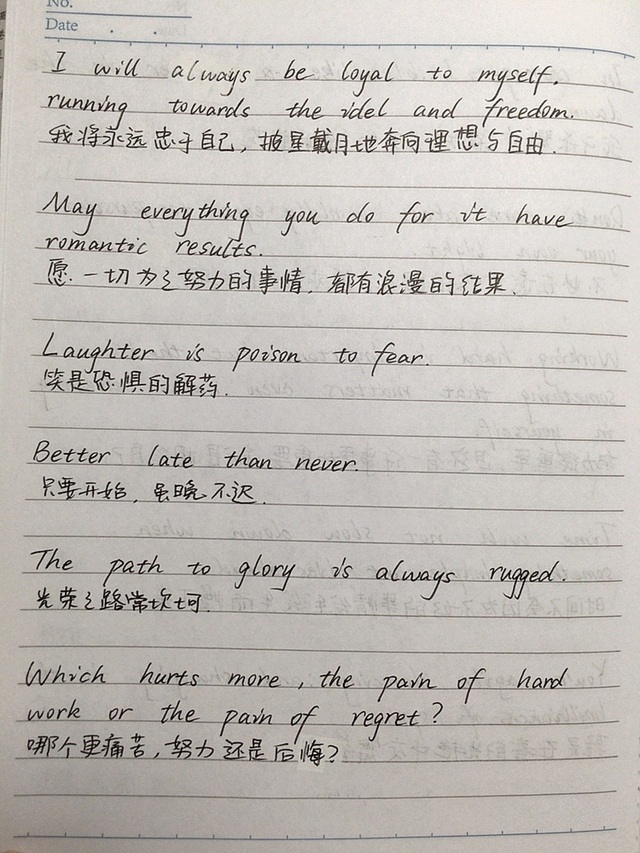 No.
Date
I will always be loyal to myself.
running towards the idel and freedom.
我将永远忠于自己，披星戴月地奔向理想与自由.
May everything you do for it have
romantic results.
愿.一切为之努力的事情，都有浪漫的结果.
Laughter is poison to fear.
笑是恐惧的解药.
Better late than never.
只要开始，虽晚不迟.
The path to glory is always rugged.
光荣之路常坎坷.
Which hurts more, the pain of hard
work or the pain of regret?
哪个更痛苦，努力还是后悔?